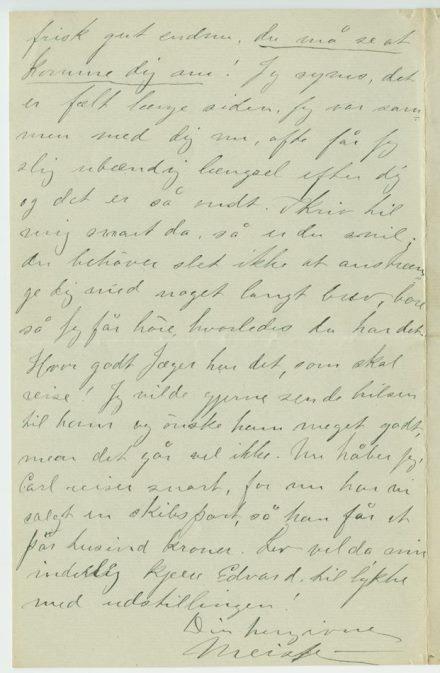 frisk gut endnu, du må se at
komme dig snu! Jeg synes, det
er fælt længe siden, Jeg var sam-
men med dig nu, ofte får Jeg
slig ubændig længsel efter dig
og det er så ondt. Skriv til
mig snart da, så er du snil,
du behöver slet ikke at anstræn-
ge dig med noget langt brev, bare
så Jeg får höre, hvorledes du har det.
Hvor godt Jæger har det, som skal
reise! Jeg vilde gjerne sende hilsen
til ham og önske ham meget godt,
men det går vel ikke. Nu håber Jeg,
Carl reiser snart, for nu har vi
salgt en skibspart, så han får et
pår tusind kroner. Lev vel da min
inderlig kjere Edvard, til lykke
med udstillingen!
Din hengivne